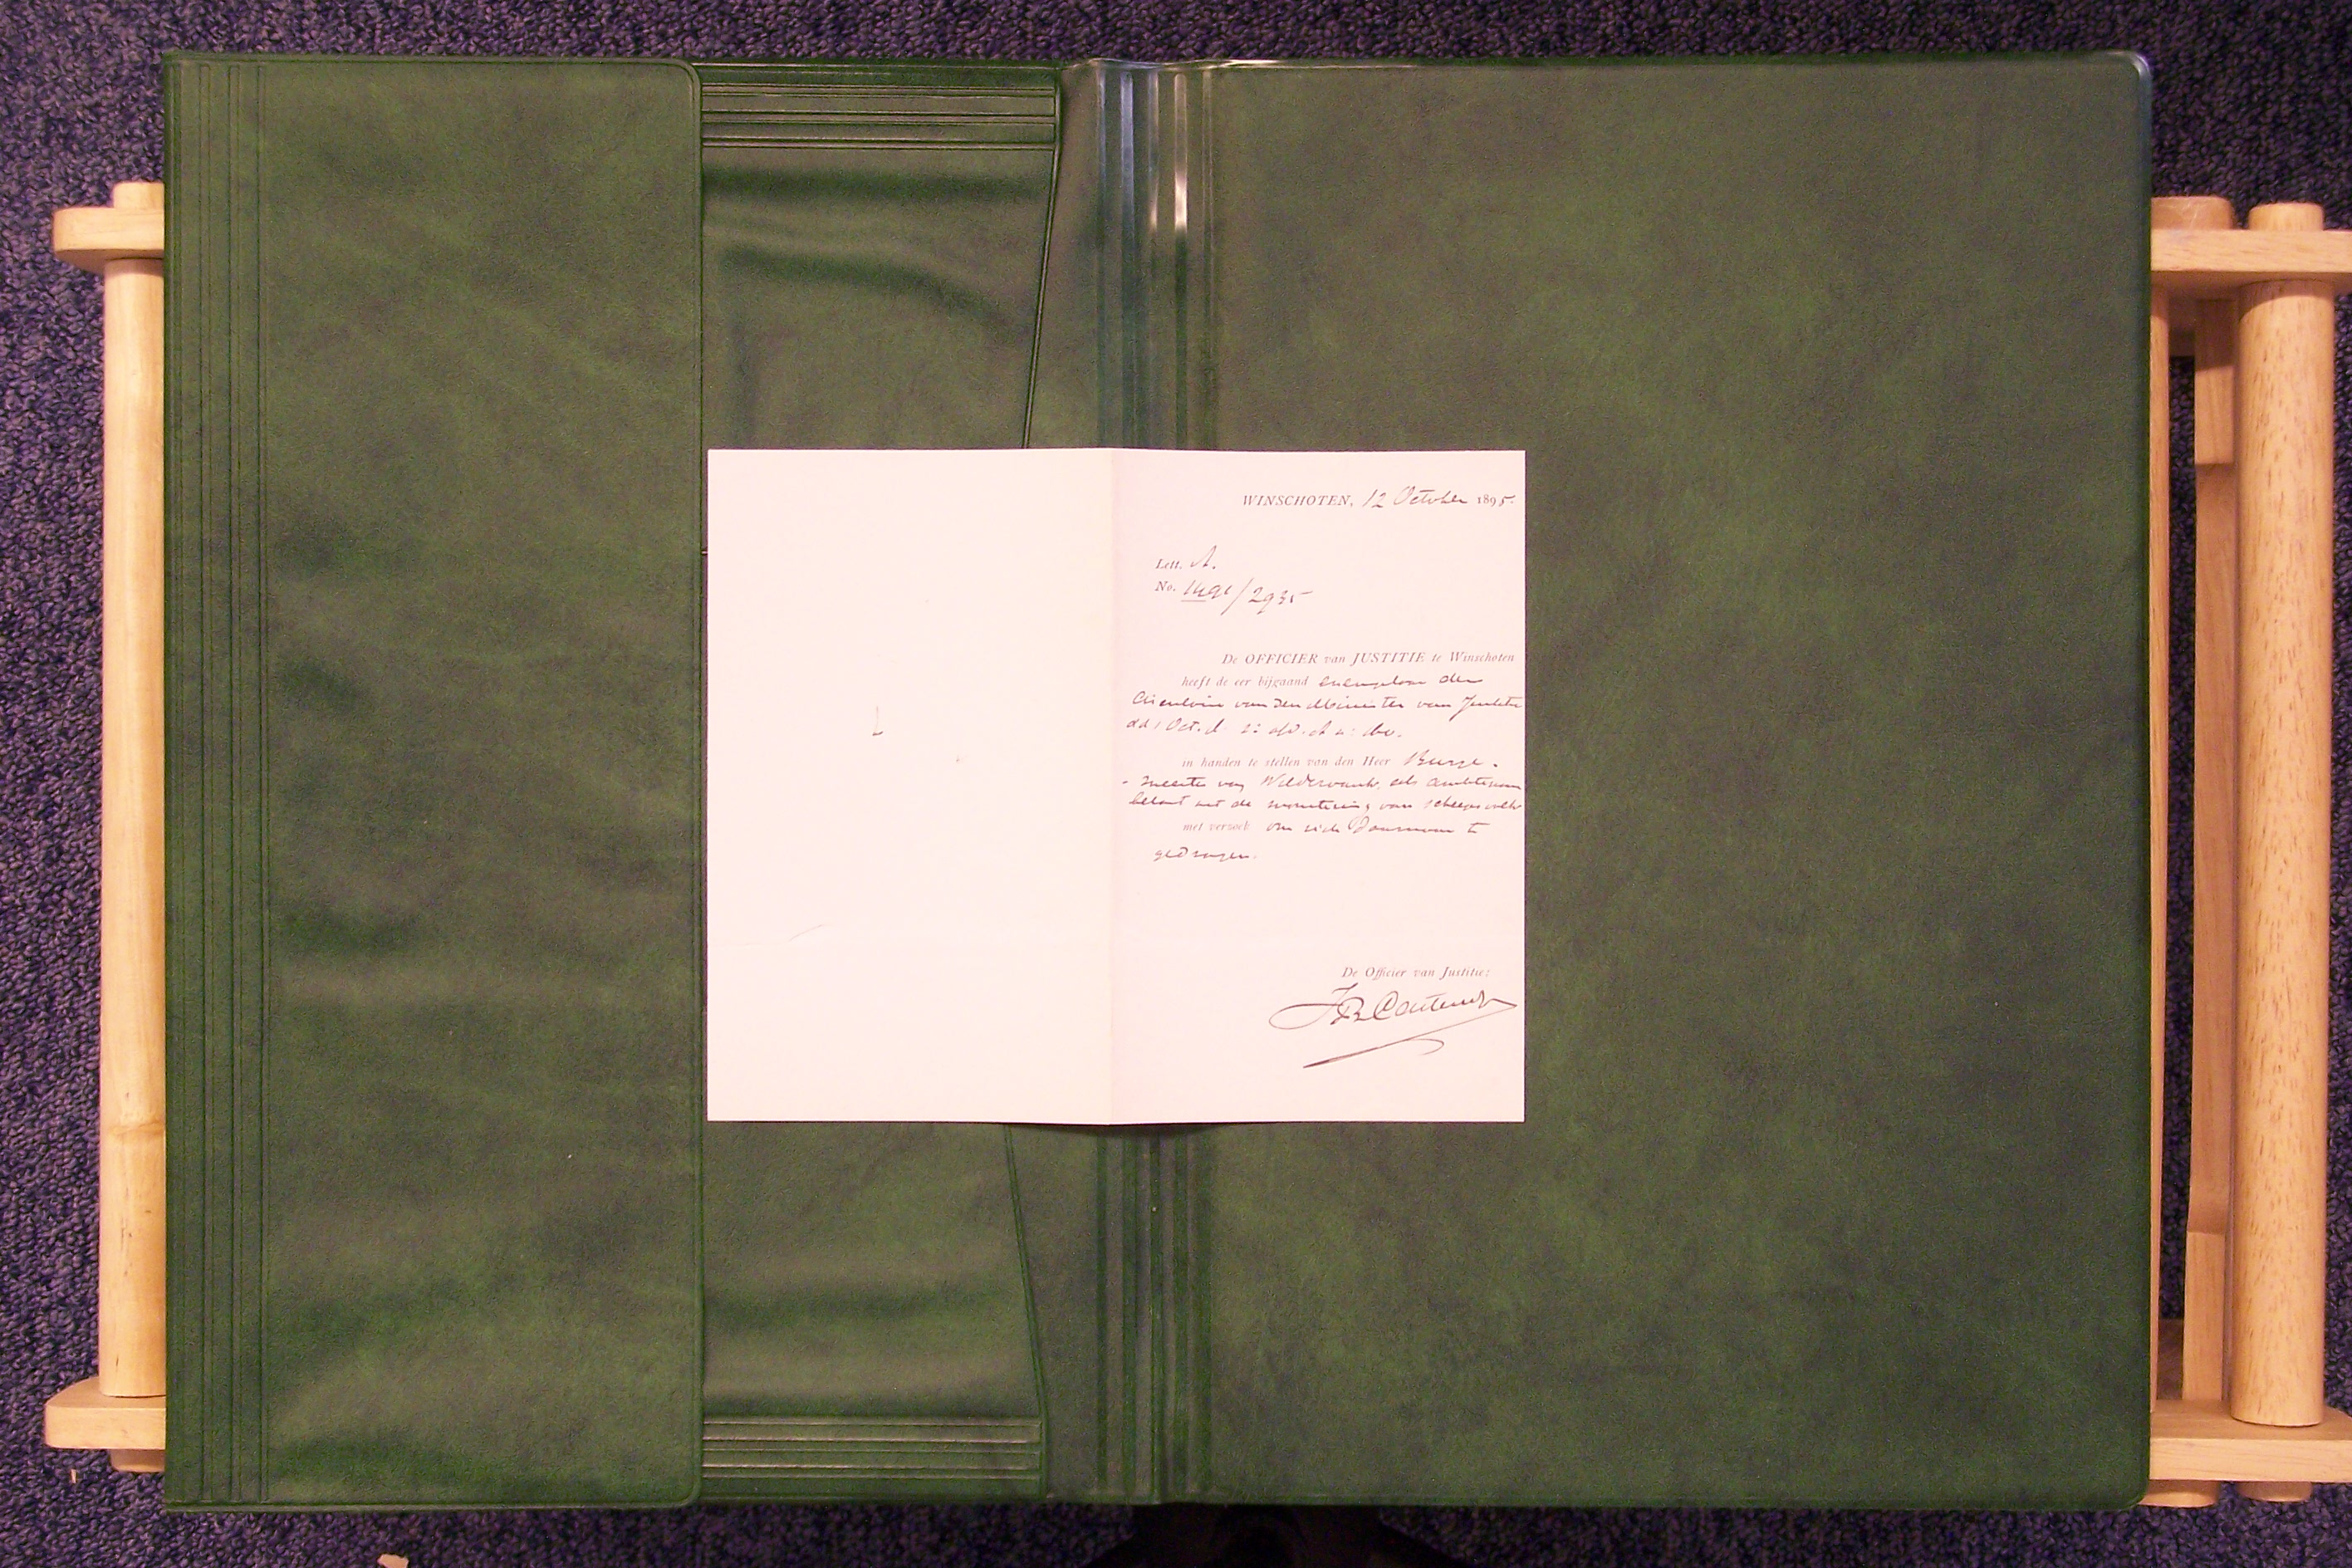 WINSCHOTEN, 12 October 1895.
Lett. A.
No. 1491/2935
De OFFICIER van JUSTITIE te Winschoten
heeft de eer bijgaand exemplaar der
Circulaire van den Minister van Justitie
dd 1 Oct. d.
in handen te stellen van den Heer Burge-
-meester van Wildervank, als ambtenaar
belast met de monstering van scheepsvolk
met verzoek om zich daarnaar te
gedragen.
De Officier van Justitie;